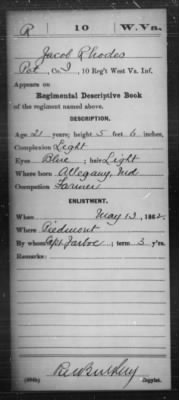 R 10 W.Va.
Jacob Rhodes
Pvt, Co. I, 10 Reg't West Va. Inf.
Appears on
Regimental Descriptive Book
of the regiment named above.
DESCRIPTION.
Age 21 years; height 5 feet 6 inches,
Complexion Light
Eyes Blue; hair Light
Where born Allegany, Md
Occupation Farmer
ENLISTMENT.
When May 13, 1862.
Where Piedmont
By whom Capt Jarboe; term 3 y'rs.
Remarks:
Copyist.